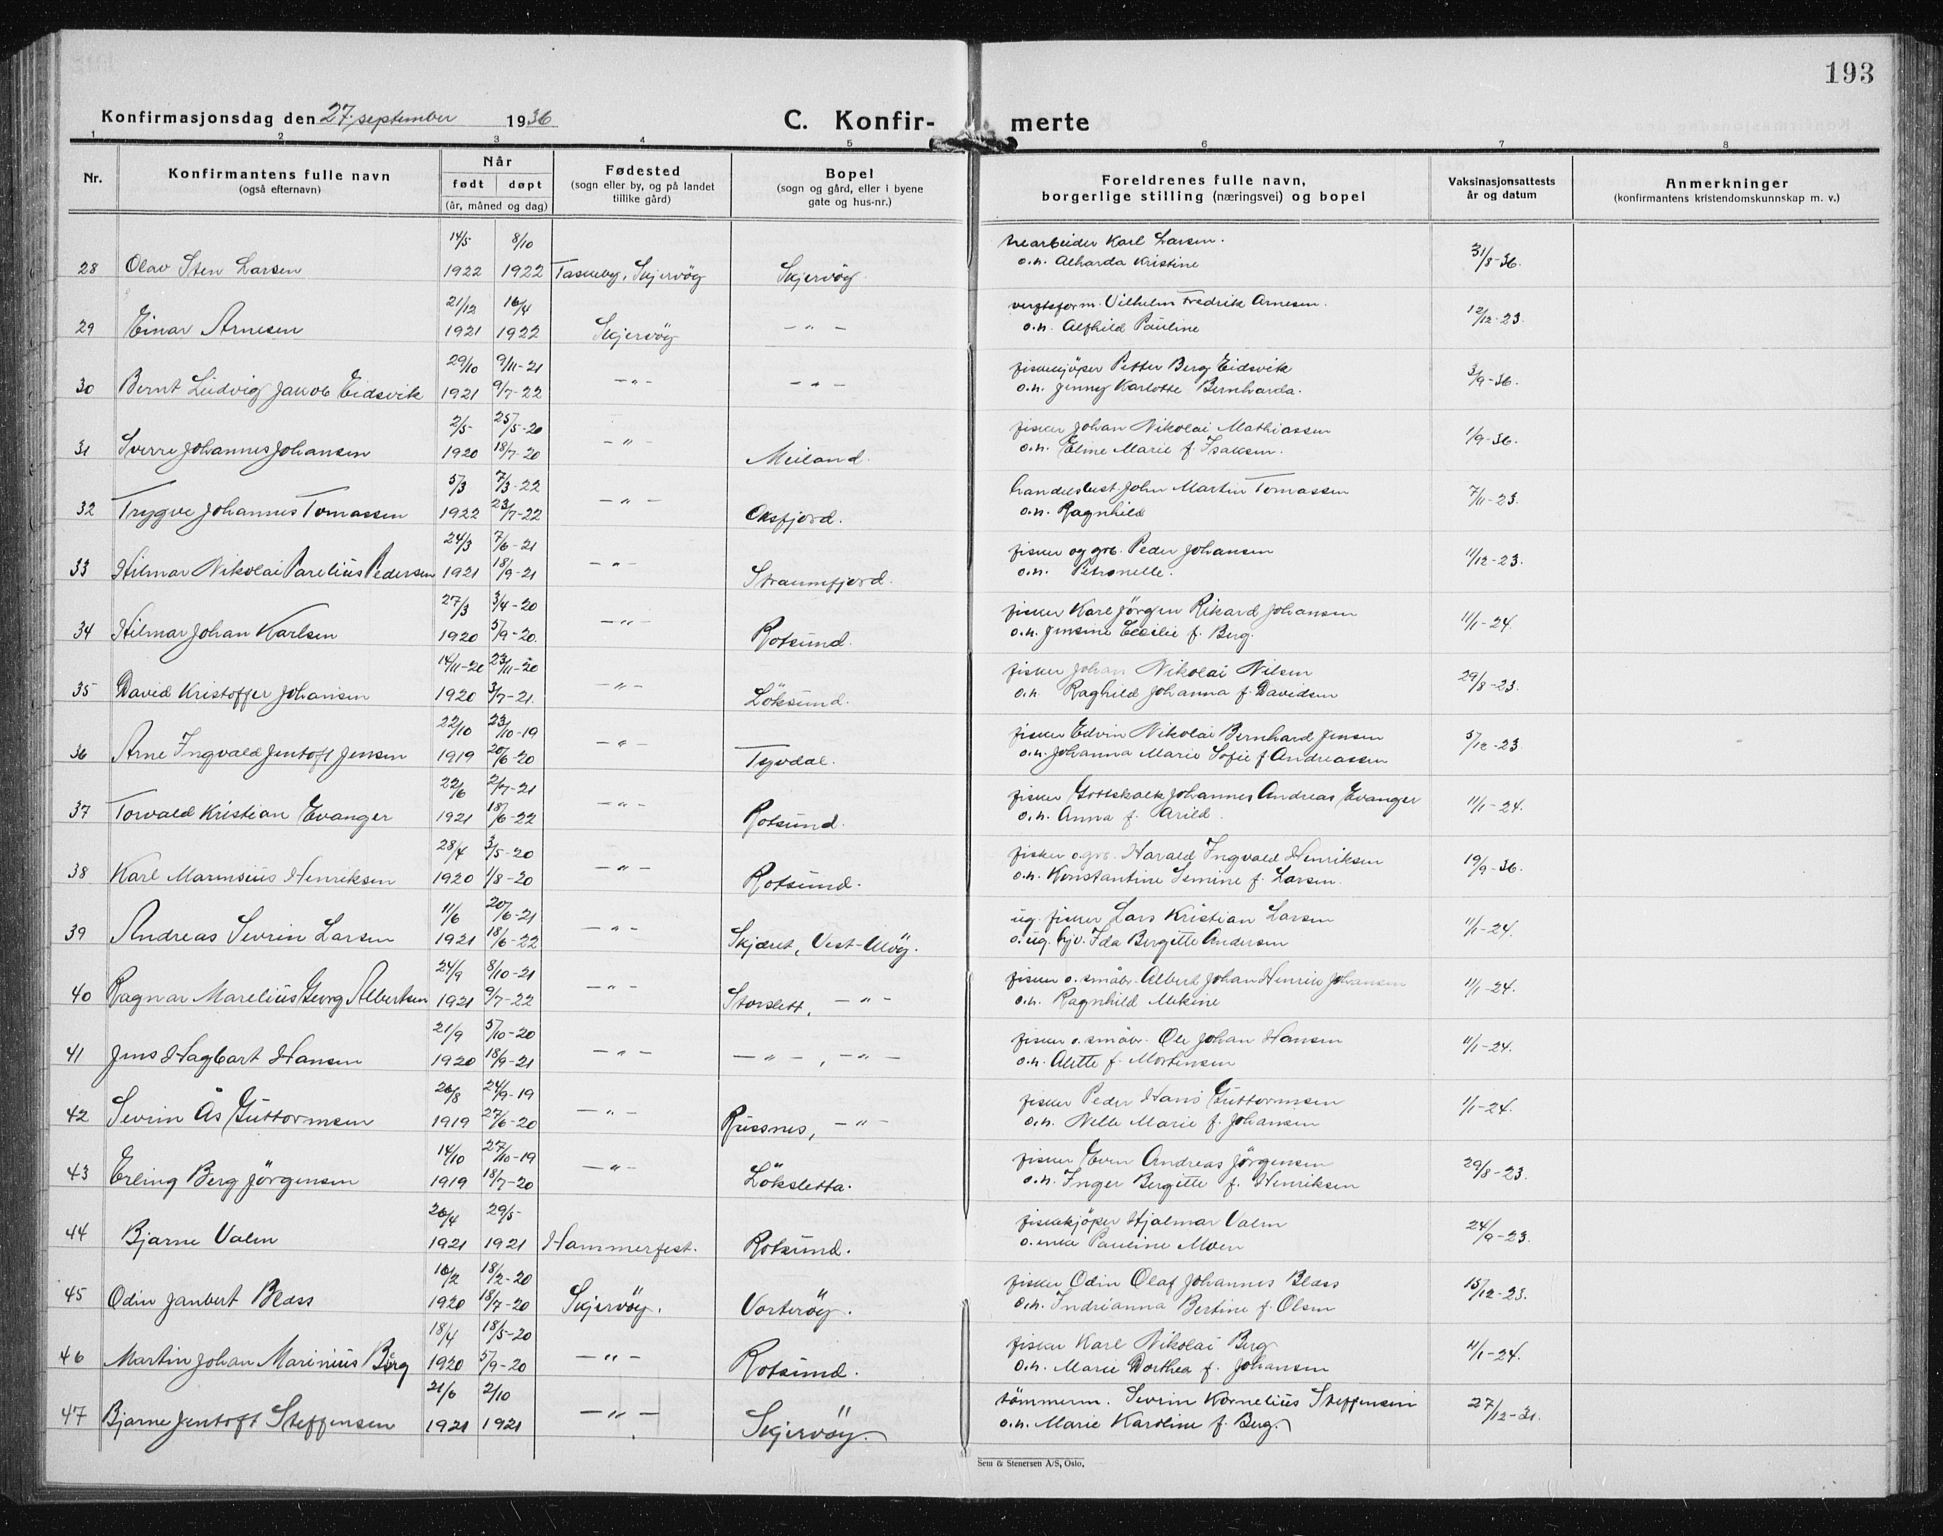 193
Konfirmasjonsdag den 27. september 1936 C. Konfir- merte
1 2 3 4 5 6 7 8
Nr. Konfirmantens fulle navn (også efternavn) Når født døpt (år, måned og dag) Fødested (sogn eller by, og på landet tillike gård) Bopel (sogn og gård, eller i byene gate og hus-nr.) Foreldrenes fulle navn, borgerlige stilling (næringsvei) og bopel Vaksinasjonsattests år og datum Anmerkninger (konfirmantens kristendomskunnskap m. v.)
14/5 8/10 Karl Larsen.
28 Olav Sten Larsen 1922 1922 Taskeby, Skjervöy Skjervöy o.h. Alharda Kristine 31/8-36.
21/12 16/4 Vilhelm Fredrik Arnesen.
29 Einar Arnesen 1921 1922 Skjervöy — " — o.h. Alfhild Pauline 12/12-23.
29/10 9/11-21 fiskekjöper Petter Berg Eidsvik
30 Bernt Ludvig Jakob Eidsvik 1921 9/7-22 — " — — " — o.h. Jenny Karlotte Bernharda. 3/9-36.
2/5- 25/5-20 fisker Johan Nikolai Mathiassen
31 Sverre Johannes Johansen 1920 18/7-20 — " — Meiland. o.h. Eline Marie f. Isaksen. 1/9-36.
5/3 7/3-22 handelsbest. John Martin Tomassen
32 Trygve Johannes Tomassen 1922 23/7-22 — " — Oksfjord. o.h. Ragnhild 7/11-23.
24/3 7/6-21 fisker og grb. Peder Johansen
33 Hilmar Nikolai Parelius Pedersen 1921 18/9-21 — " — Straumfjord. o.h. Petronelle. 11/12-23.
27/3 3/4-20 fisker Karl Jörgen Rikard Johansen
34 Hilmar Johan Karlsen 1920 5/9-20. — " — Rotsund. o.h. Jensine Cecilie f. Berg. 11/1-24.
14/11-20 23/11-20 fisker Johan Nikolai Nilsen
35 David Kristoffer Johansen 1920 3/7-21. — " — Löksund. o.h. Raghild Johanna f. Davidsen 29/8-23.
22/10 23/10-19 fisker Edvin Nikolai Bernhard Jensen
36 Arne Ingvald Jentoft Jensen 1919 20/6-20 — " — Tyvdal. o.h. Johanna Marie Sofie f Andreassen 5/12-23.
22/6 2/7-21 fisker Gottskalk Johannes Andreas Evanger
37 Torvald Kristian Evanger 1921 18/6-22 — " — Rotsund. o.h. Anna f. Arild. 11/1-24.
28/4 3/5-20 fisker o. grb. Harald Ingvald Henriksen
38 Karl Marensius Henriksen 1920 1/8-20 — " — Rotsund. o.h. Konstantine Semine f. Larsen. 19/9-36.
11/6 20/6-21 ug. fisker Lars Kristian Larsen
39 Andreas Sevrin Larsen 1921 18/6-22 — " — Skjæret, Vest-Ulöy. o. ug. hjv. Ida Bergitte Andersen 11/1-24.
24/9 8/10-21 fisker o. småbr. Albert Johan Henrik Johansen
40 Ragnar Marelius Georg Albertsen 1921 9/7-22 — " — Storslett, — " — o.h. Ragnhild Mekine 11/1-24.
21/9 5/10-20 fisker o. småbr. Ole Johan Hansen
41 Jens Hagbart Hansen 1920 18/9-21 — " — — " — , — " — o.h. Alette f. Mortensen 11/1-24.
26/8 24/9-19 fisker Peder Hans Guttormsen
42 Sevrin Ås Guttormsen 1919 27/6-20 — " — Russnes, — " — o.h. Nelle Marie f. Johansen 1/1-24.
14/10 27/10-19 fisker Even Andreas Jörgensen
43 Erling Berg Jörgensen 1919 18/7-20 — " — Löksletta. o.h. Inger Bergitte f. Henriksen 29/8-23.
26/4 29/5- fiskekjöper Hjalmar Valen
44 Bjarne Valen 1921 1921 Hammerfest. Rotsund. o. enke Pauline Moen 24/9-23.
16/2 18/2-20 fisker Odin Olaf Johannes Blæss
45 Odin Janbert Blæss 1920 18/7-20 Skjervöy. Vorteröy. o.h. Indrianna Bertine f. Olsen 15/12-23.
18/4 18/5-20 fisker Karl Nikolai Berg
46 Martin Johan Marinius Berg 1920 5/9-20 — " — Rotsund. o.h. Marie Dorthea f. Johansen 11/1-24.
21/6 2/10 tömmerm. Sevrin Kornelius Steffensen
47 Bjarne Jentoft Steffensen 1921 1921 — " — Skjervöy. o.h. Marie Karoline f. Berg. 27/12-31.
Sem & Stenersen A/S, Oslo.